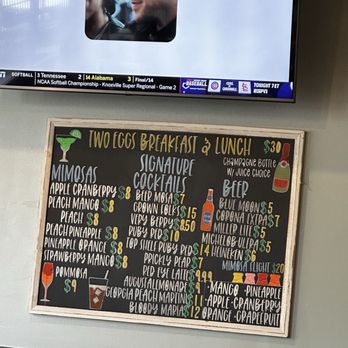 SOFTBALL
3 Tennessee 2 | 14 Alabama 3 Final/14
NCAA Softball Championship - Knoxville Super Regional - Game 2
BASEBALL
TONIGHT 7ET
ESPN
TWO EGGS BREAKFAST & LUNCH
$30
CHAMPAGNE BOTTLE
W/ JUICE CHOICE
MIMOSAS
APPLE CRANBERRY $8
PEACH MANGO $8
PEACH $8
PEACH PINEAPPLE $8
PINEAPPLE ORANGE $8
STRAWBERRY MANGO $8
POMMOSA
$9
SIGNATURE
COCKTAILS
BEER MOSA $7
GROWN FOLKS $15
VERY BERRY $8.50
RUBY RED $10
TOP SHELF RUBY RED $14
PRICKLY PEAR $7
RED EYE LATTE 9.99
AUGUSTA LEMONADE 9
GEORGIA PEACH MARTINI 11
BLOODY MARIA 12
BEER
BLUE MOON $5
CORONA EXTRA $7
MILLER LITE $5
MICHELOB ULTRA $5
HEINEKEN $6
MIMOSA FLIGHT $20
-MANGO -PINEAPPLE
-APPLE-CRANBERRY
-ORANGE-GRAPEFRUIT